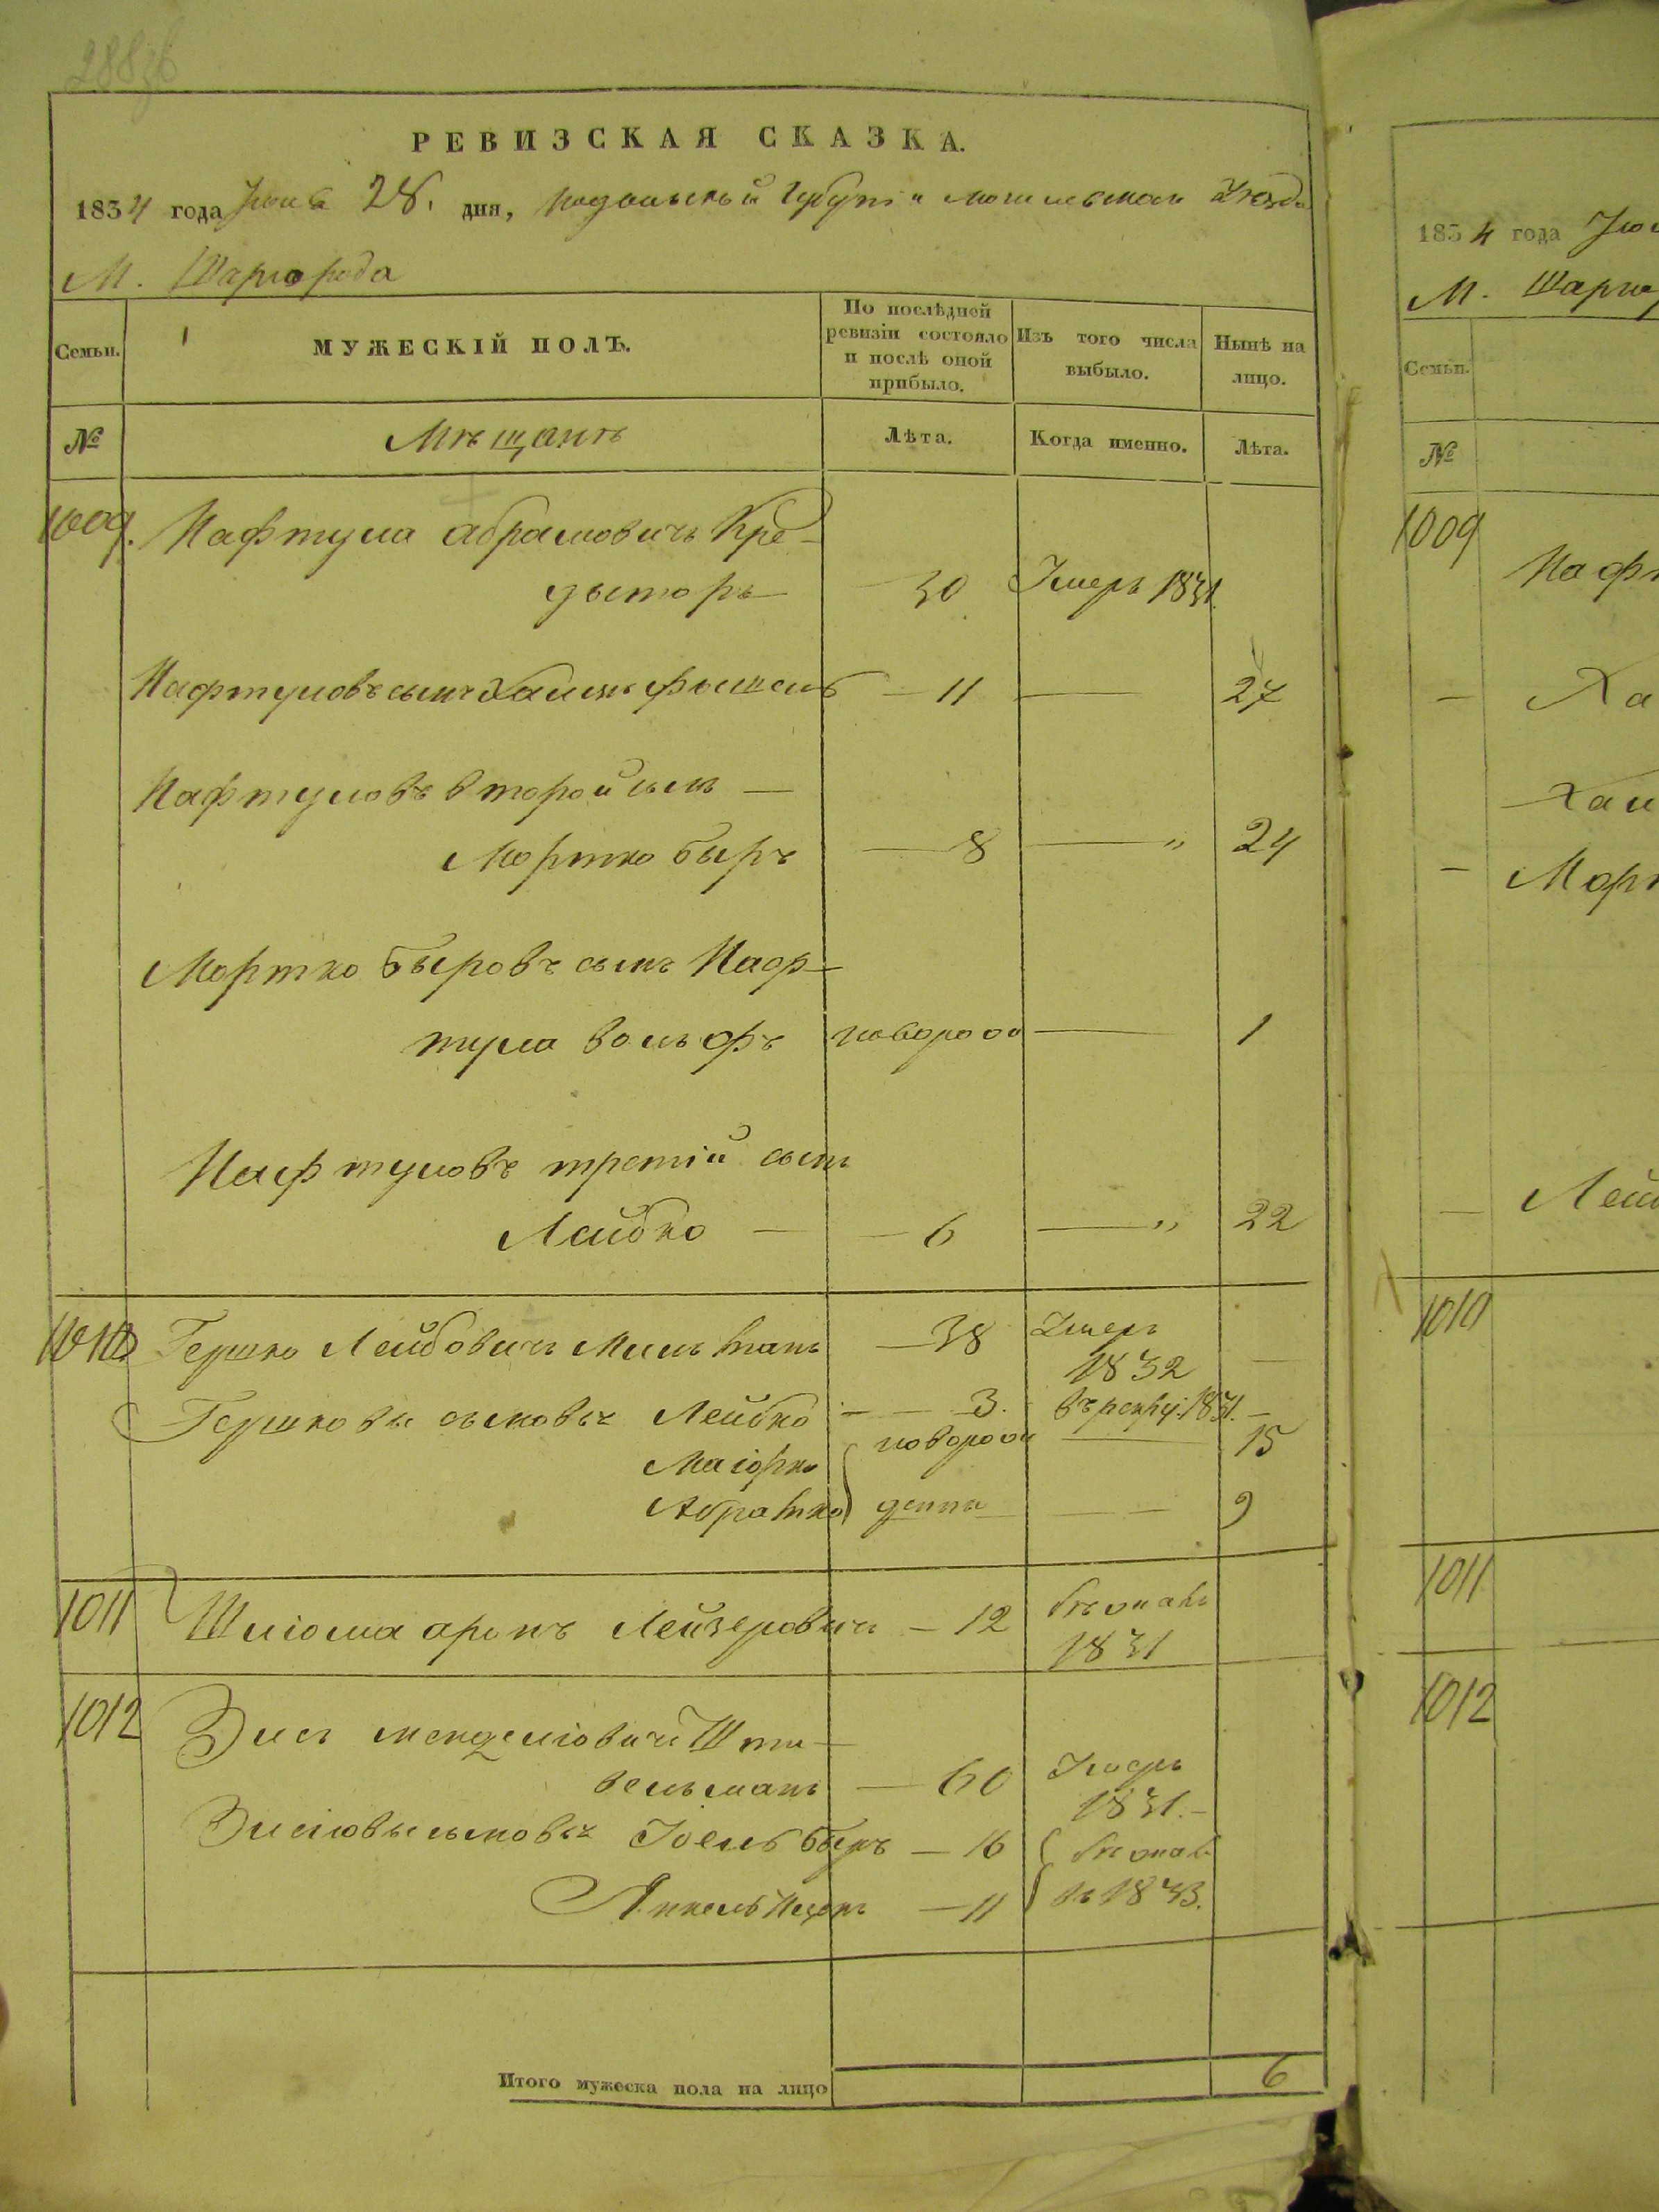 288
РЕВИЗСКАЯ СКАЗКА.
1834 года Июня 28. дня, Подольской Губернiи Могилевскаго Уѣзда
М. Шаргорода
Семьи.
МУЖЕСКІЙ ПОЛЪ.
По послѣдней ревизіи состояло и послѣ оной прибыло.
Изъ того числа выбыло.
Нынѣ на лицо.
№
Мѣщанѣ
Лѣта.
Когда именно.
Лѣта.
1009. Нафтула абрамовичъ Кре-
дыторъ — 30 Умеръ 1831.
Нафтуловъ сынъ Хаимъ фышель — 11 — 27
Нафтуловъ второй сынъ —
Мортко быръ — 8 — " 24
Мортко Быровъ сынъ Наф-
тула вольфъ новорож — 1
Нафтуловъ третiй сынъ
Лейбко — — 6 — " 22
1010 Гершко Лейбовичъ — 38 Умеръ 1832 —
Гершковы сыновья Лейбко — — 3. въ рекру: 1831. —
Маiорко новорож — 15
Абрашко денни — — 9
1011 Шлiома аронъ Лейзеровичъ — 12 1831
1012 Зисъ менделiовичъ Шти-
вельманъ — 60 Умеръ 1831. —
Зисiовы сыновья Iоель быръ — 16
Янкель Ицекъ — 11 въ 1833.
Итого мужеска пола на лицо 6
1834 года
М.
Семьи.
№
1009
Нафт
— Ха
Хаи
— Морт
— Лейб
1010
1011
1012